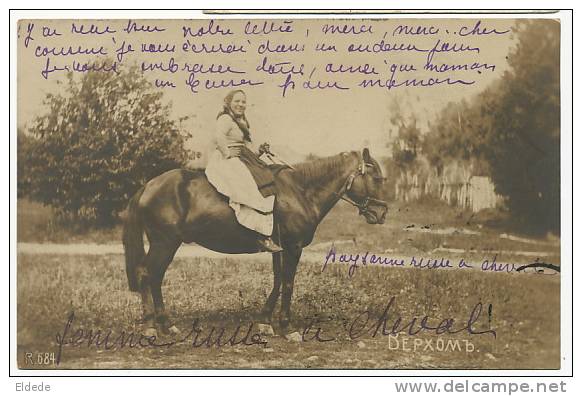 J'ai reçu hier notre lettre, merci, merci.. cher
comment je vous écrirai dans un ou deux jours
je vous embrasse tous, ainsi que maman
un baiser pour maman
paysanne russe à cheval
femme russe à cheval!
Верхомъ.
R.684
Eldede
www.delcampe.net